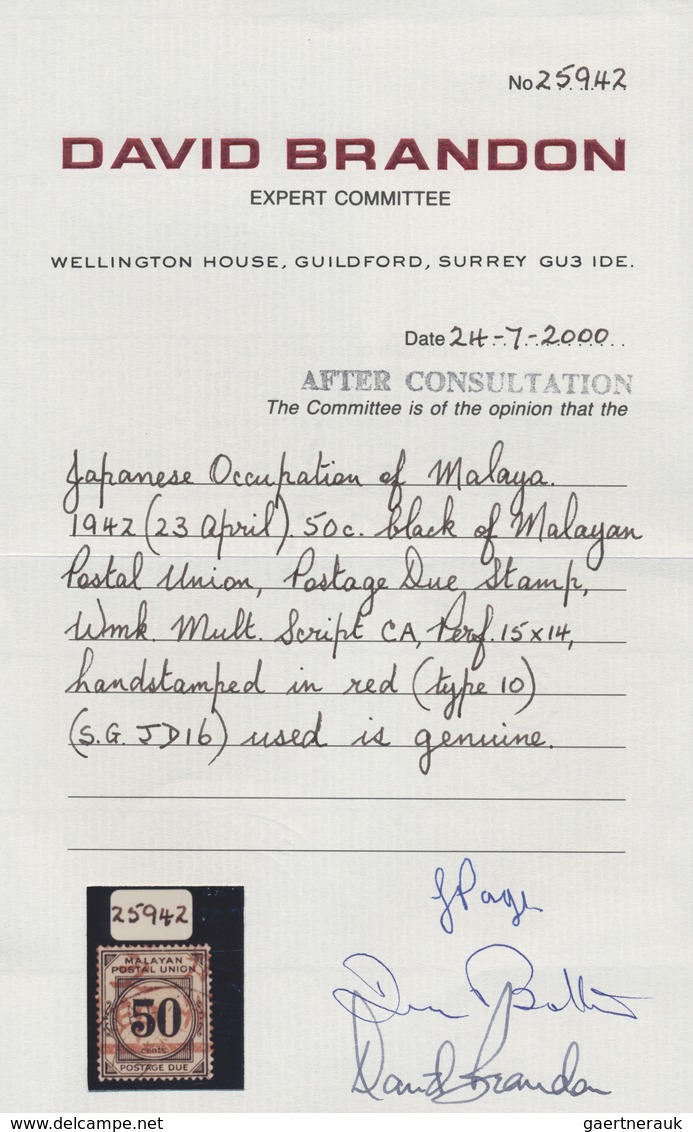 No 25942
DAVID BRANDON
EXPERT COMMITTEE
WELLINGTON HOUSE, GUILDFORD, SURREY GU3 IDE.
Date 24-7-2000
AFTER CONSULTATION
The Committee is of the opinion that the
Japanese Occupation of Malaya.
1942 (23 April). 50c. black of Malayan
Postal Union, Postage Due Stamp,
Wmk. Mult. Script CA, Perf. 15x14,
handstamped in red (type 10)
(S.G. JD16) used is genuine.
25942
MALAYAN
POSTAL UNION
50
cents
POSTAGE DUE
David Brandon
gaertnerauk